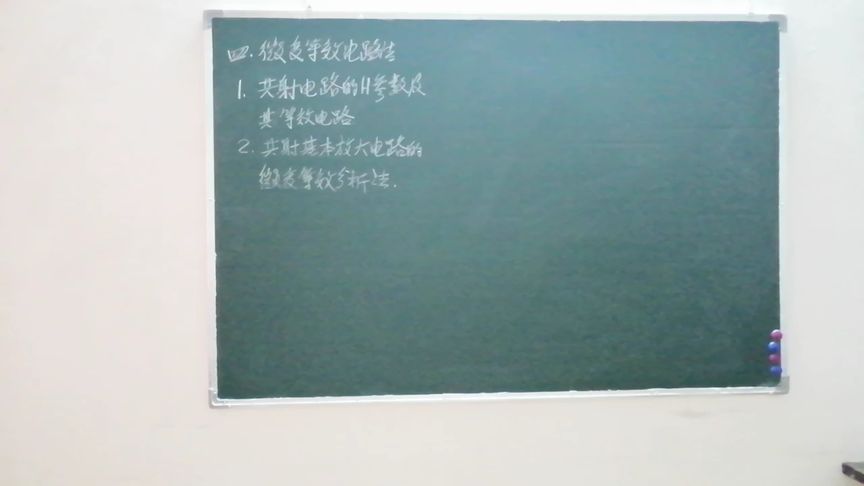 四.微变等效电路法
1.共射电路的H参数及
其等效电路
2.共射基本放大电路的
微变等效分析法.